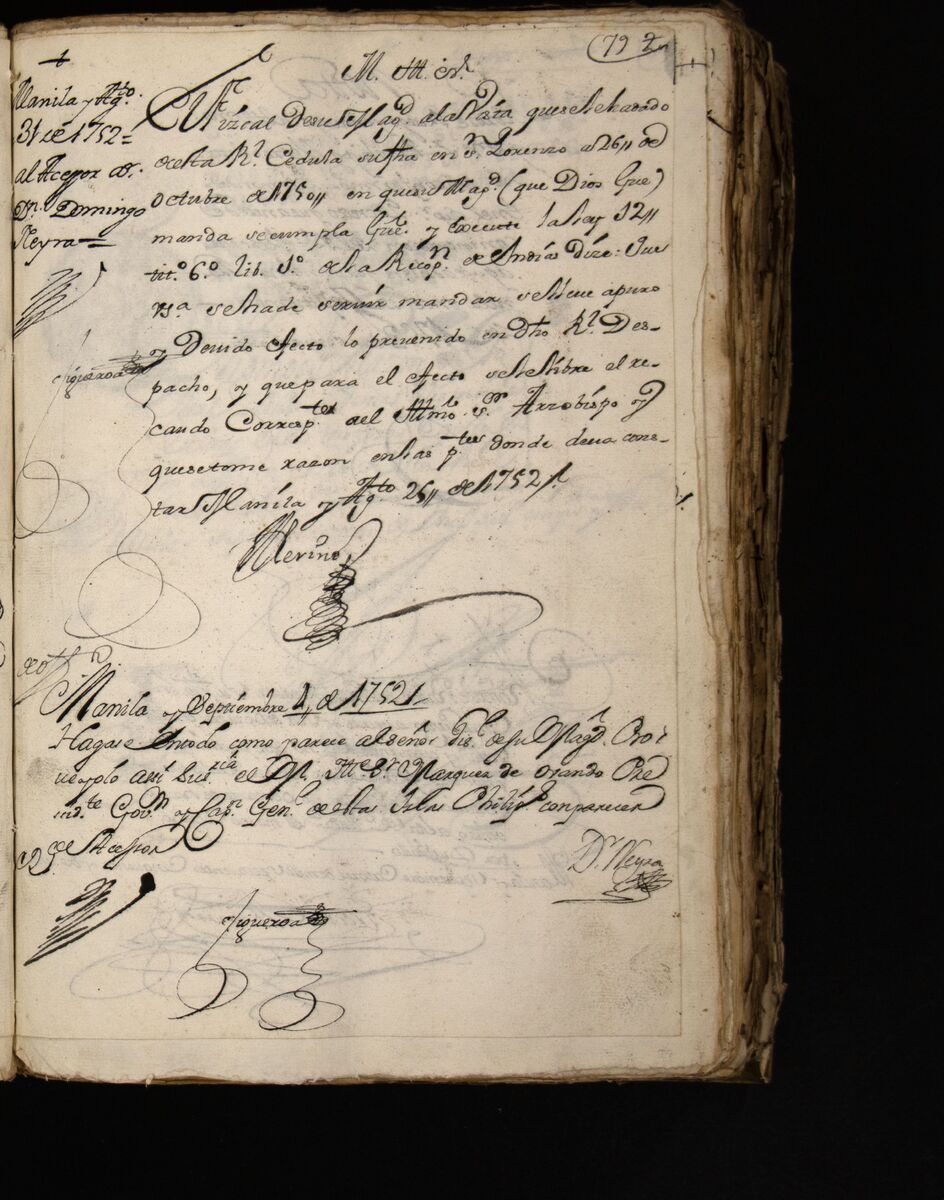 79
M. Ill. Sr.
Manila y Agto.
31 de 1752=
al Acesor Dr.
Dn. Domingo
Neyra=
Figueroa
El Fiscal de su Magd. a la Vista que se le ha dado
de esta Rl. Cedula su fha en Sn. Lorenzo a 26,, de
Octubre de 1750,, en que su Magd. (que Dios Gue)
manda se cumpla Gue. y execute la Ley 12,,
tit.o 6.o Lib. 1.o de la Recopn. de Indias Dize: Que
VSa. se ha de servir mandar se lleve a puro
y Devido efecto lo prevenido en dho Rl. Des-
pacho, y que para el efecto se le libre el re-
caudo Correspte. al Illmo. Sr. Arzobispo y
que se tome razon en las ptes. donde deva cons-
tar Manila y Agto. 26,, de 1752,,
Merino
Manila y Septiembre 1,, de 1752,,
Hagase en todo como parece al señor Fisl. de su Magd. Pro-
veyolo asi su Sria. el M. Ille Sr. Marquez de Ovando Pre
sidte. Govr. y Capn. Genl. de estas Islas Philips. con parecer
de Acessor
Dr. Neyra
Figueroa